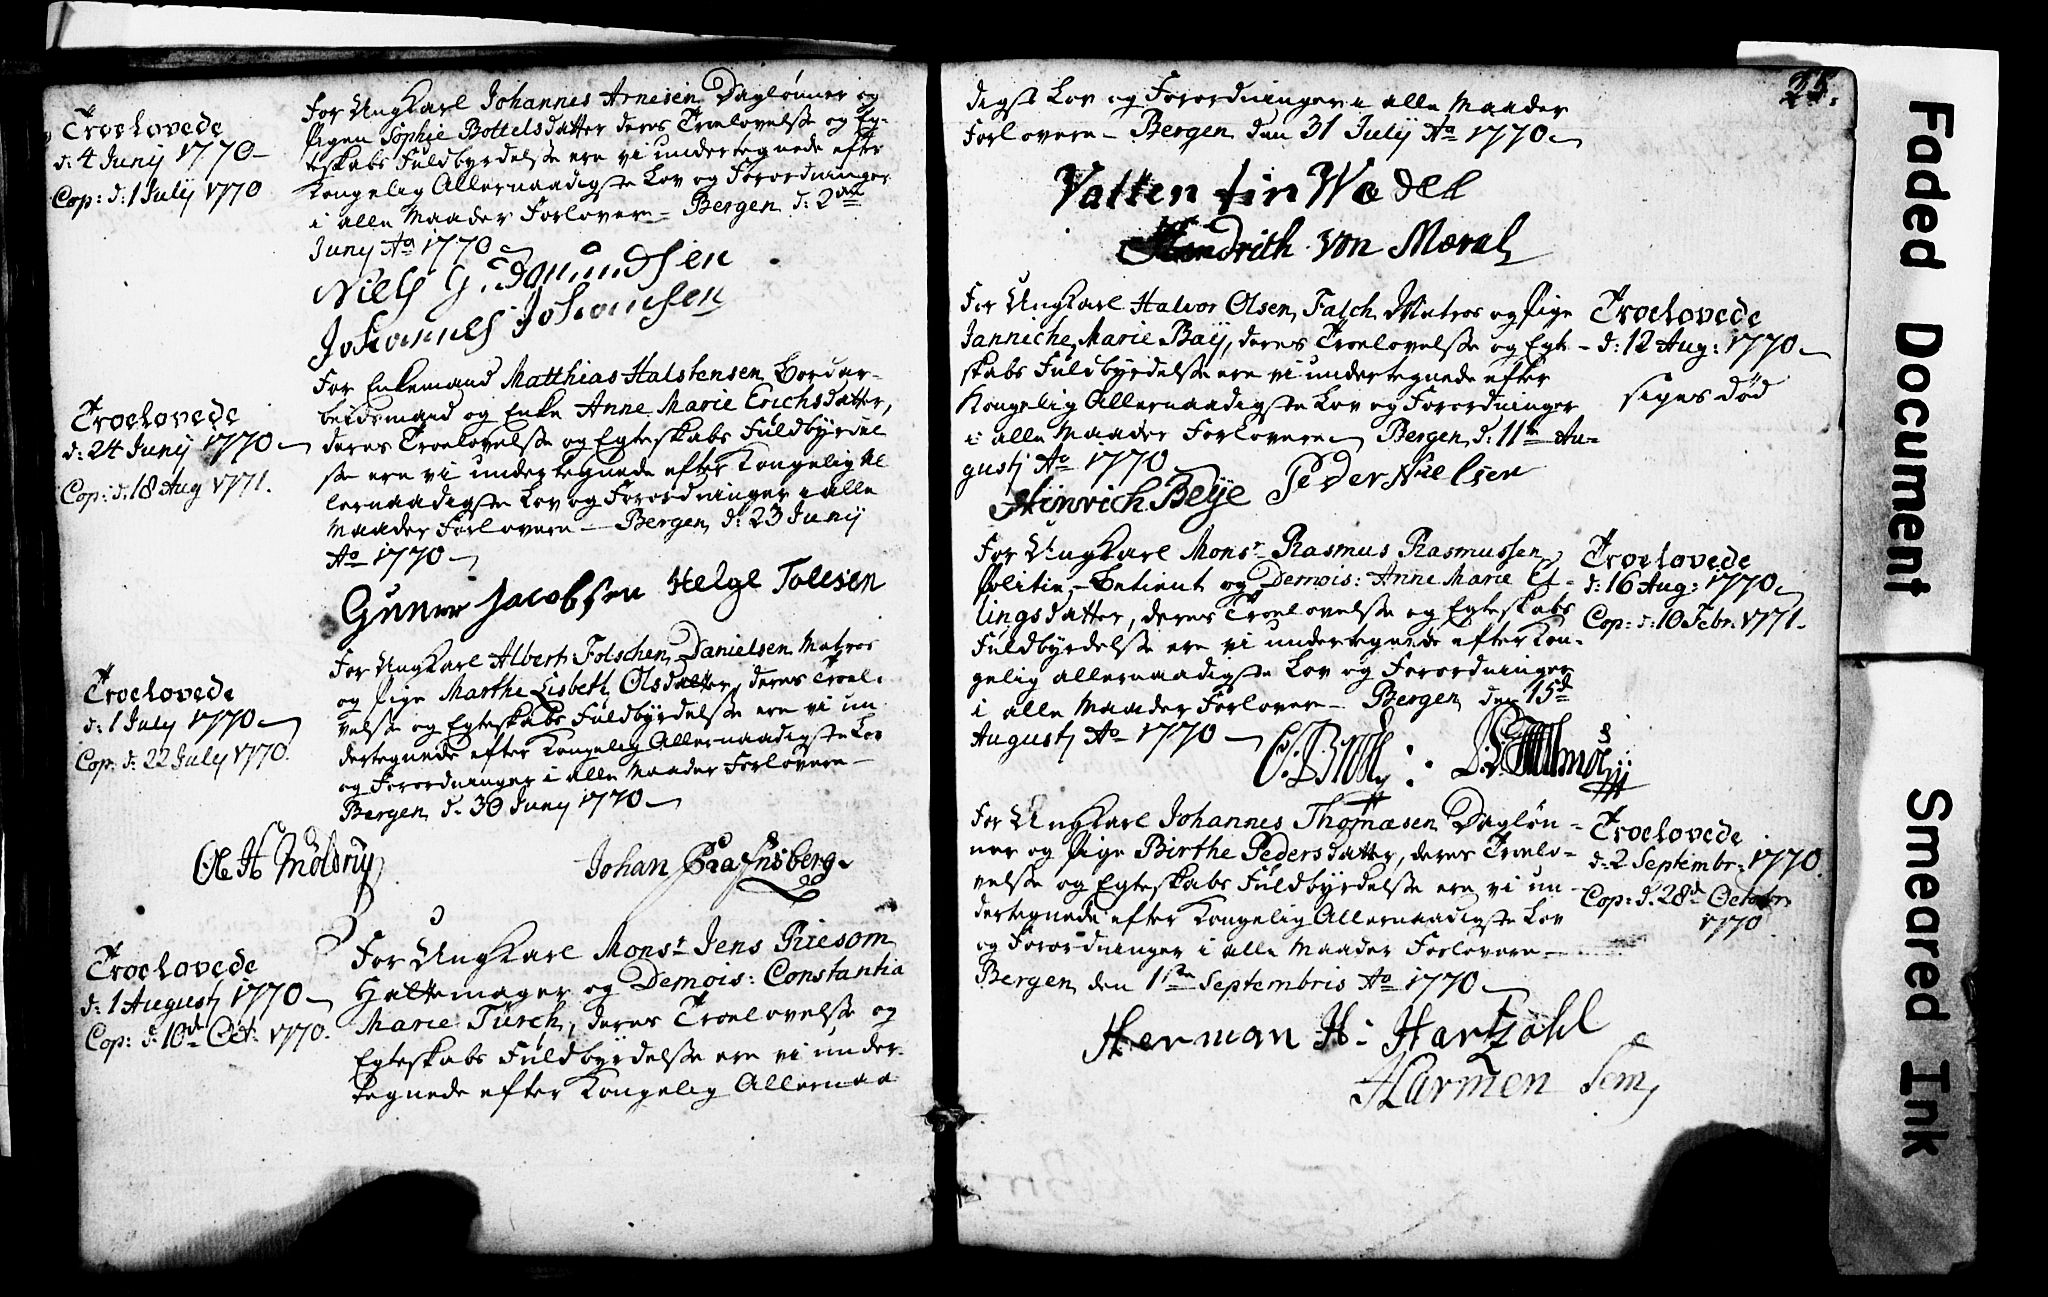 Troelovede
d: 4 Junij 1770 –
Cop: d: 1 Julij 1770
For Ung Karl Johannes Arnesen Daglønner og
Pigen Sophie Bottelsdatter deres Troelovelse og Eg-
teskabs Fuldbyrdelse ere vi undertegnede efter
Kongelig Allernaadigste Lov og Forordninger
i alle Maader Forlovere – Bergen d: 2den
Junij Ao 1770 –
Niels Gudmundsen
Johannes Johansen
Troelovede
d: 24 Junij 1770 –
Cop: d: 18 Aug 1771.
For Enkemand Matthias Halstensen Bordar-
beidsmand og Enke Anne Marie Erichsdatter,
deres Troelovelse og Egteskabs Fuldbyrdel
se ere vi undertegnede efter Kongelig Al
lernaadigste Lov og Forordninger i alle
Maader Forlovere – Bergen d: 23 Junij
Ao 1770 –
Guner Jacobsen Helge Tollesen
Troelovede
d: 1 July 1770 –
Cop: d: 22 July 1770.
For Ung Karl Albert Folschen Danielsen Matros
og Pige Marthe Lisbeth Olsdatter, deres Troel-
velse og Egteskabs Fuldbyrdelse ere vi un
dertegnede efter Kongelig Allernaadigste Lov
og Forordninger i alle Maader Forlovere –
Bergen d: 30 Junij 1770 –
Ole H Moldrup Johan
Troelovede
d: 1 Augustj 1770 –
Cop: d: 10de Oct: 1770.
For Ung Karl Monsr Jens Riesom
Hattemager og Demois: Constantia
Marie Türch, deres Troelovelse og
Egteskabs Fuldbyrdelse ere vi under-
tegnede efter Kongelig Allernaa
25.
digste Lov og Forordninger i alle Maader
Forlovere – Bergen den 31 Julij Ao 1770 –
Vallentin Wedel
Hendrich von Meral
For Ung Karl Halvor Olsen Falch Matros og Pige
Janniche Marie Baij, deres Troelovelse og Egte-
skabs Fuldbyrdelse ere vi undertegnede efter
Kongelig Allernaadigste Lov og Forordninger
i alle Maader Forlovere – Bergen d: 11te Au-
gustj Ao 1770
Hinrich Beije Peder Nielsen
Troelovede
d: 12 Aug: 1770 –
siges død
For Ung Karl Monsr Rasmus Rasmussen
Politie-Betient og Demois: Anne Marie El-
lingsdatter, deres Troelovelse og Egteskabs
Fuldbyrdelse ere vi undertegnede efter Kon-
gelig allernaadigste Lov og Forordninger
i alle Maader Forlovere – Bergen den 15d
Augustj Ao 1770 –
Troelovede
d: 16 Aug: 1770 –
Cop: d: 10 Febr: 1771 –
For Ung Karl Johannes Thomæsen Dagløn-
ner og Pige Birthe Pedersdatter, deres Troelo-
velse og Egteskabs Fuldbyrdelse ere vi un-
dertegnede efter Kongelig Allernaadigste Lov
og Forordninger i alle Maader Forlovere –
Bergen den 1ste Septembris Ao 1770 –
Herman H: Hartzohl
Harmen Sem
Troelovede
d: 2 Septembr: 1770.
Cop: d. 28de Octobr:
1770
Faded Document
Smeared Ink